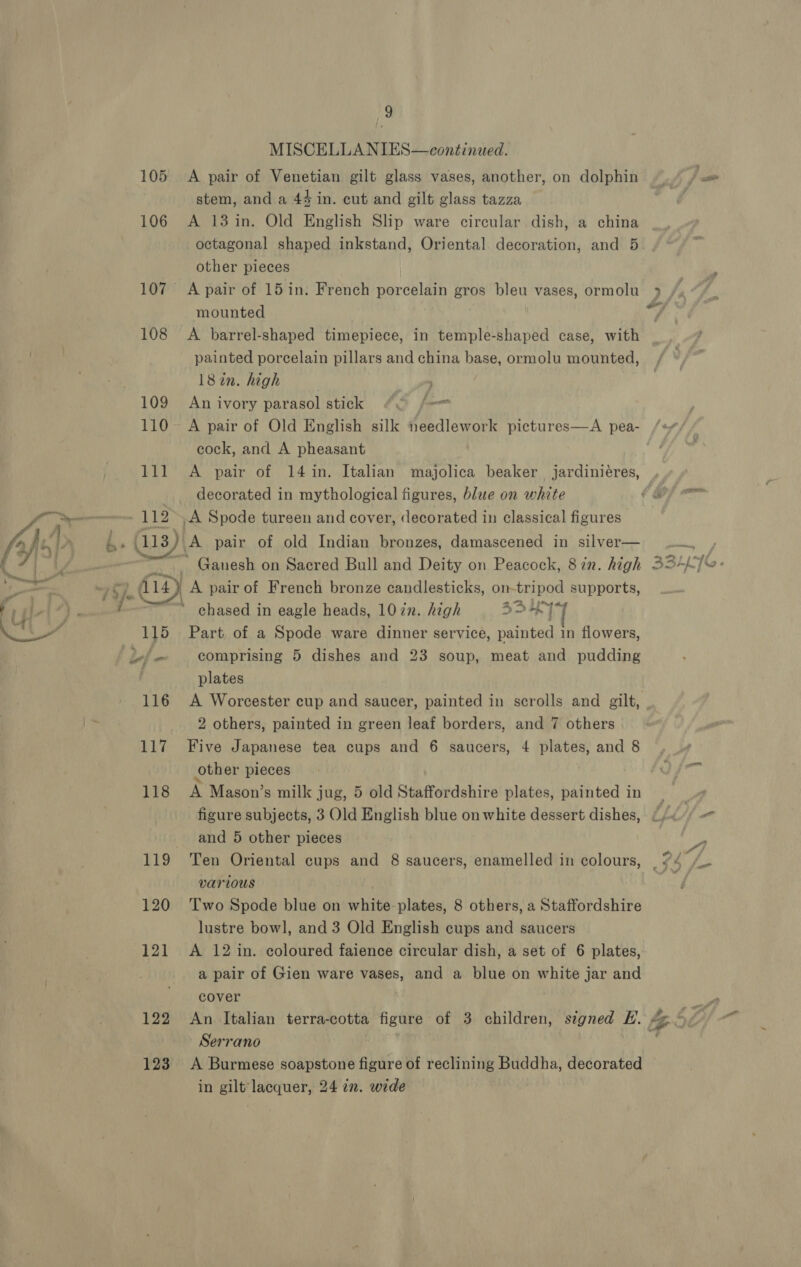 9
MISCELLANIES—continued.
105 A pair of Venetian gilt glass vases, another, on dolphin
stem, and a 4½ in. cut and gilt glass tazza
106 A 13 in. Old English Slip ware circular dish, a china
octagonal shaped inkstand, Oriental decoration, and 5
other pieces
107 A pair of 15 in. French porcelain gros bleu vases, ormolu
mounted
108 A barrel-shaped timepiece, in temple-shaped case, with
painted porcelain pillars and china base, ormolu mounted,
18 in. high
109 An ivory parasol stick
110 A pair of Old English silk needlework pictures—A pea-
cock, and A pheasant
111 A pair of 14 in. Italian majolica beaker jardinières,
decorated in mythological figures, blue on white
112 A Spode tureen and cover, decorated in classical figures
113 A pair of old Indian bronzes, damascened in silver—
Ganesh on Sacred Bull and Deity on Peacock, 8 in. high
114 A pair of French bronze candlesticks, on tripod supports,
chased in eagle heads, 10 in. high
115 Part of a Spode ware dinner service, painted in flowers,
comprising 5 dishes and 23 soup, meat and pudding
plates
116 A Worcester cup and saucer, painted in scrolls and gilt,
2 others, painted in green leaf borders, and 7 others
117 Five Japanese tea cups and 6 saucers, 4 plates, and 8
other pieces
118 A Mason's milk jug, 5 old Staffordshire plates, painted in
figure subjects, 3 Old English blue on white dessert dishes,
and 5 other pieces
119 Ten Oriental cups and 8 saucers, enamelled in colours,
various
120 Two Spode blue on white plates, 8 others, a Staffordshire
lustre bowl, and 3 Old English cups and saucers
121 A 12 in. coloured faience circular dish, a set of 6 plates,
a pair of Gien ware vases, and a blue on white jar and
cover
122 An Italian terra-cotta figure of 3 children, signed E.
Serrano
123 A Burmese soapstone figure of reclining Buddha, decorated
in gilt lacquer, 24 in. wide